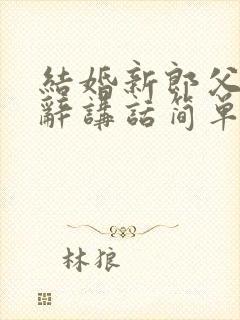 結婚新郎父
辭講話简单
林狼